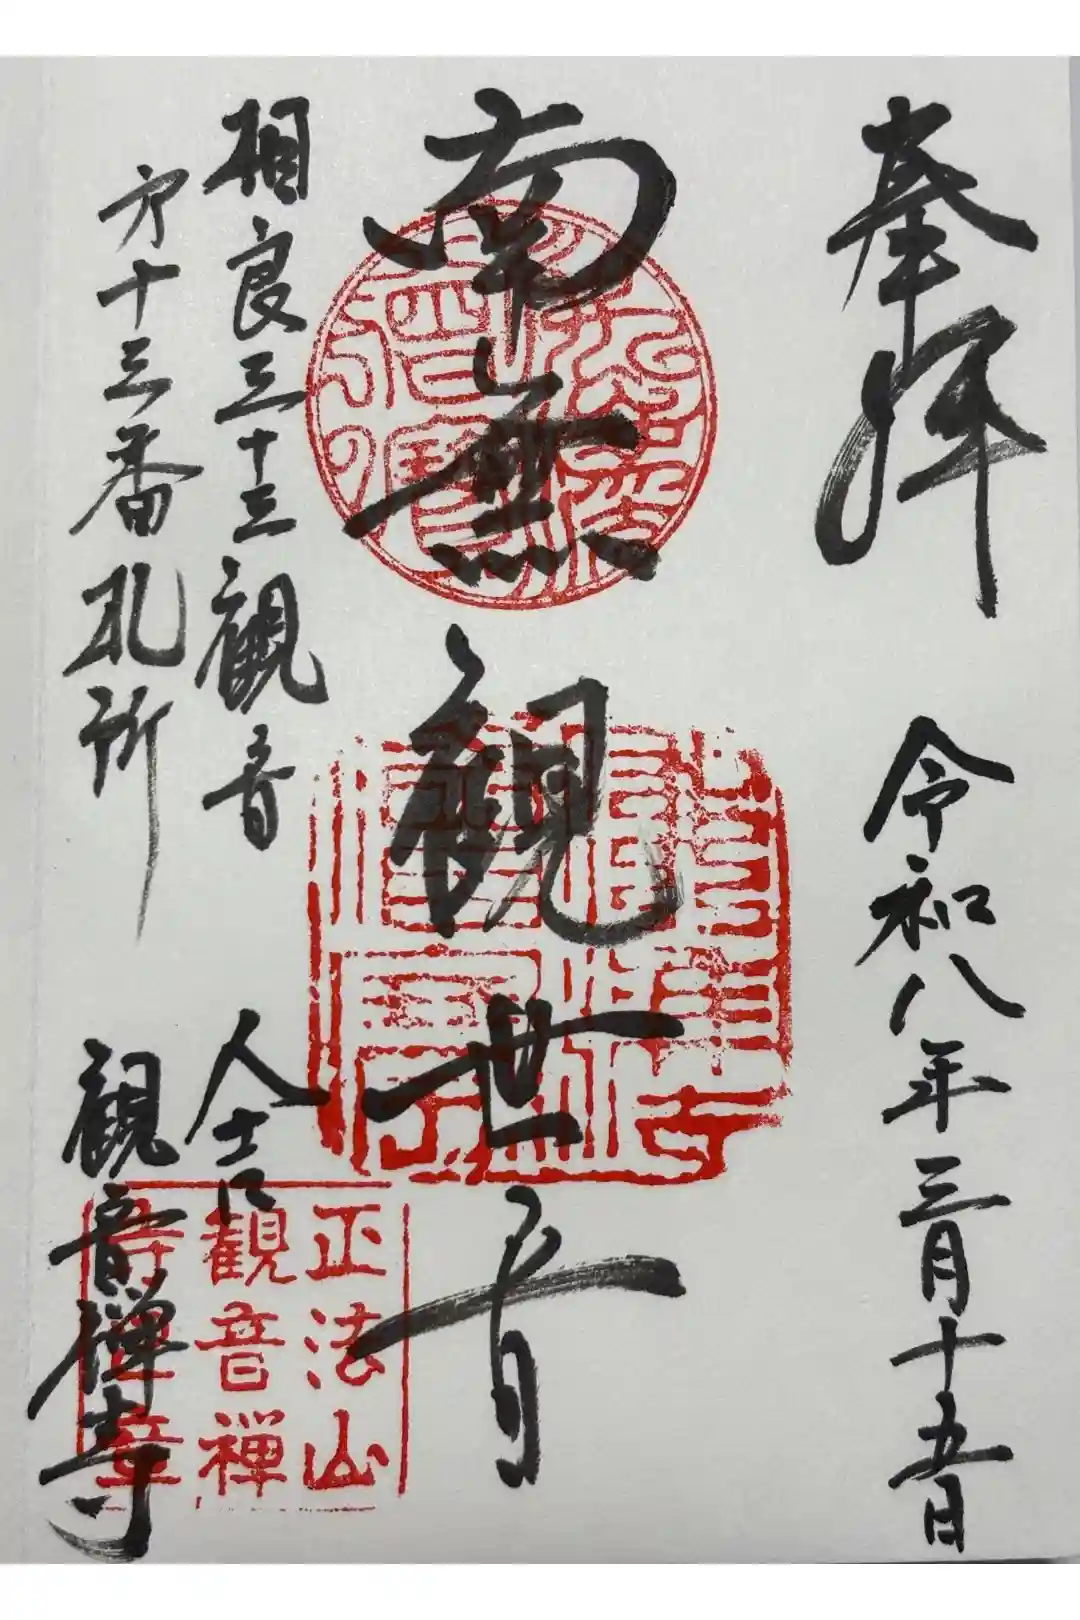 奉拝
令和八年三月十五日
南無観世音
相良三十三観音
第十三番札所
人吉
観音禅寺
佛法僧寶
正法山
観音禅
寺
章